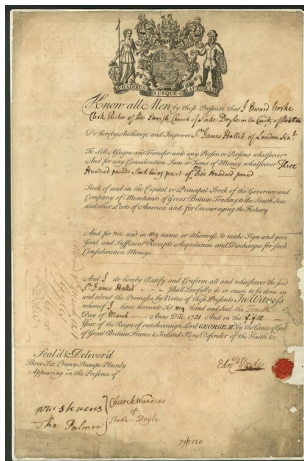 A GADIBUS USQUE AD AURORAM
Know all Men by these Presents that I Edward Yorke
Clerk Rector of the Parish Church of Stoke Doyle in the County of
Do hereby Authorize and Impower St. James Hallet of London
To Sell Assigne and Transfer unto any Person or Persons whatsoever
And for any Consideration Sum or Sums of Money whatsoever Three
Hundred pounds Stock being part of Five Hundred pound
Stock of and in the Capital or Principal Stock of the Governour and
Company of Merchants of Great Britain Trading to the South Seas
and other Parts of America and for Encouraging the Fishery
And for me and in my name or otherwise to make Sign and give
Good and Sufficient Receipts Acquittances and Discharges for such
Consideration Moneys
And I do hereby Ratify and Confirm all and whatsoever the said
St. James Hallet Shall Lawfully do or cause to be done in
and about the Premisses by Vertue of these Presents In Witness
whereof I have hereunto Set my hand and Seal the
Day of March Anno D'ni. 1731 And in the Fifth
Year of the Reign of our Sovereign Lord GEORGE II by the Grace of God
of Great Britain France & Ireland King Defender of the Faith &c
Seal'd & Deliver'd
Three Six Penny Stamps Plainly
Appearing in the Presence of
Edwd Yorke
Wm Stevens
Tho. Palmer
Church Wardens
of
Stoke-Doyle